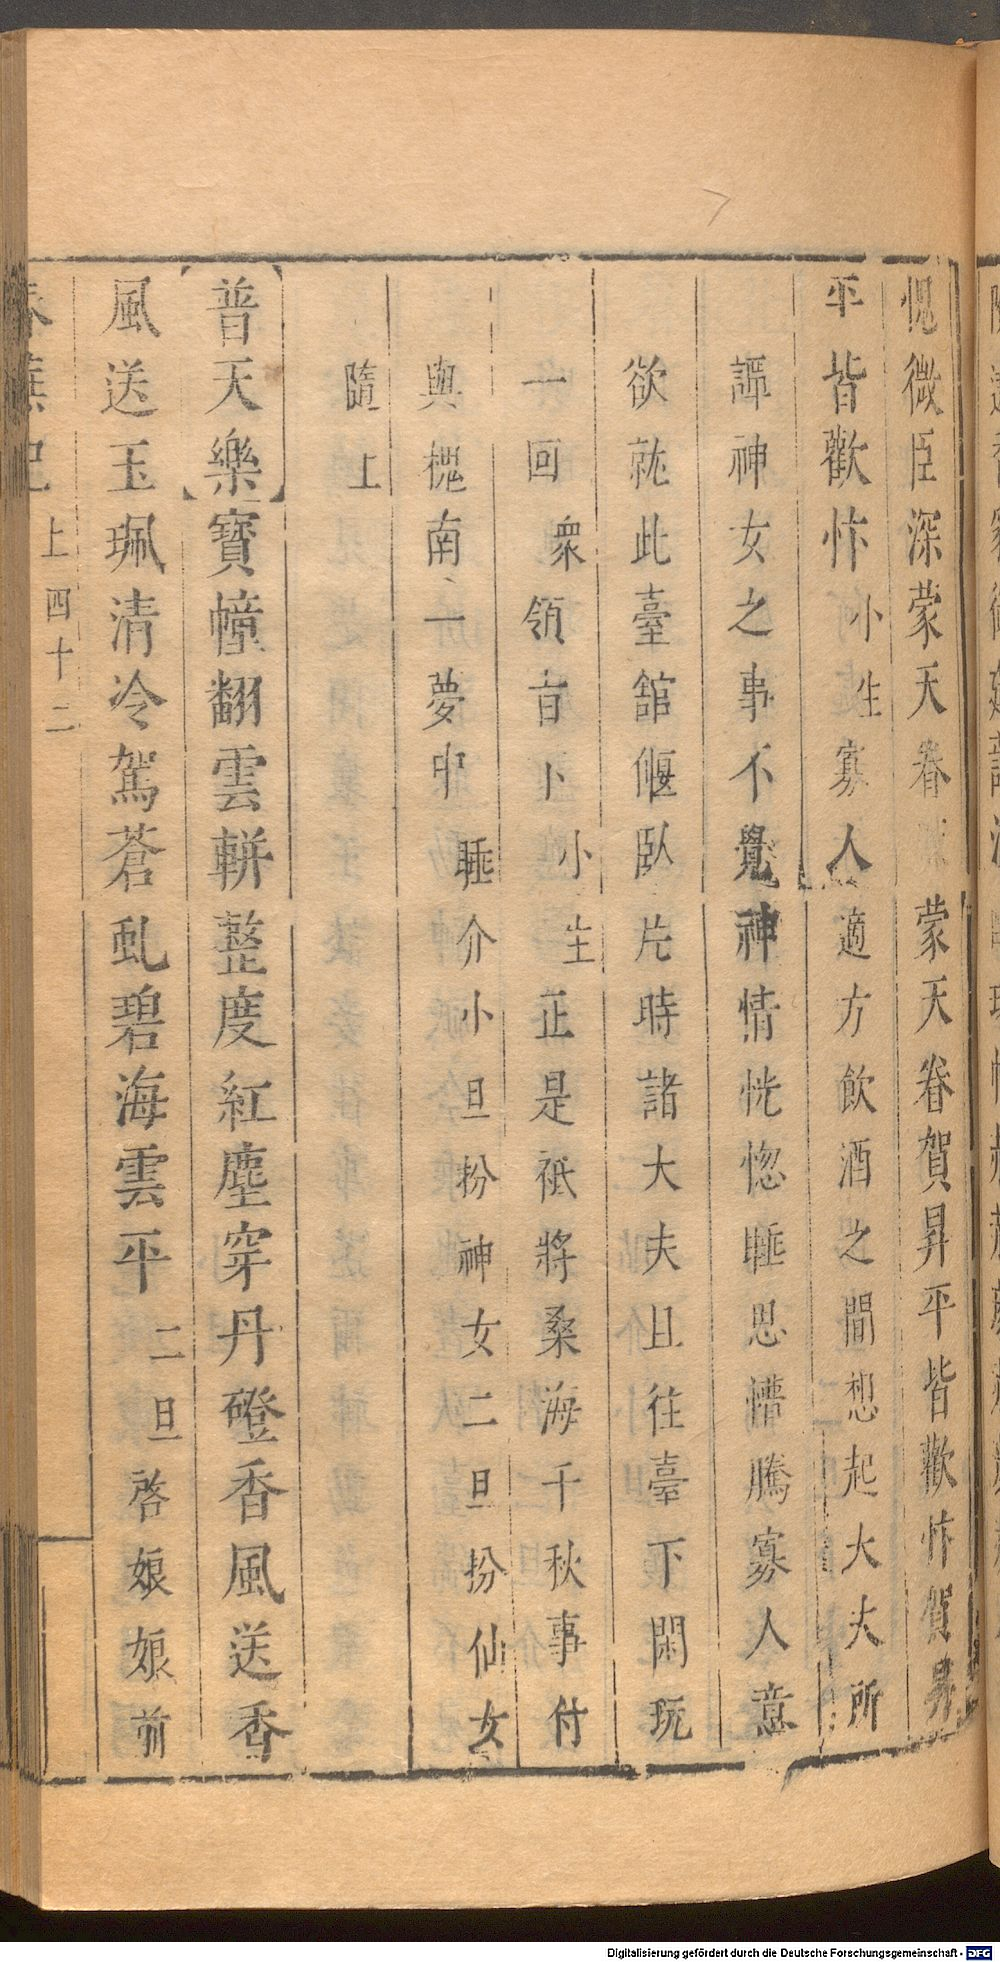 愧微臣深蒙天眷蒙天眷賀昇平皆歡忭賀昇
平皆歡忭小生寡人適方飲酒之間想起大夫所
譚神女之事不覺神情恍惚睡思懵騰寡人意
欲就此臺舘偃臥片時諸大夫且往臺下閑玩
一回衆領旨下小生正是祗將桑海千秋事付
與槐南一夢中睡介小旦扮神女二旦扮仙女
隨上
【普天樂】寶幢翻雲軿整度紅塵穿丹磴香風送香
風送玉珮清冷駕蒼虬碧海雲平二旦啓娘娘前
春蕪記上四十二
Digitalisierung gefördert durch die Deutsche Forschungsgemeinschaft - DFG